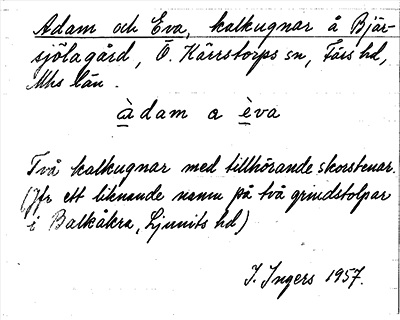 Adam och Eva, kalkugnar å Bjär-
sjölagård, Ö. Kärrstorps sn, Färs hd,
Mhs län.
àdam a èva
Två kalkugnar med tillhörande skorstenar.
(Jfr ett liknande namn på två grindstolpar
i Balkåkra, Ljunits hd)
I. Ingers 1957.